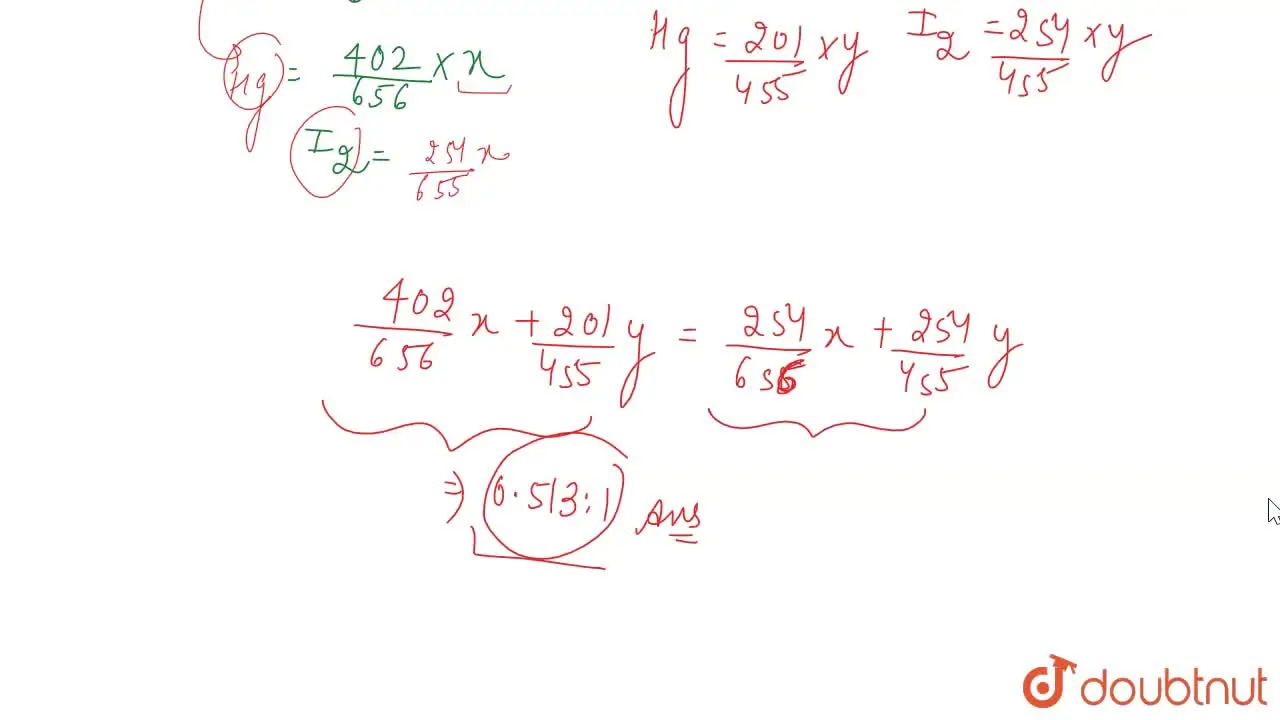 Hg = 402/656 × x
I2 = 254/655 x
Hg = 201/455 × y I2 = 254/455 × y
402/656 x + 201/455 y = 254/656 x + 254/455 y
⇒ 0.513:1 Ans
doubtnut